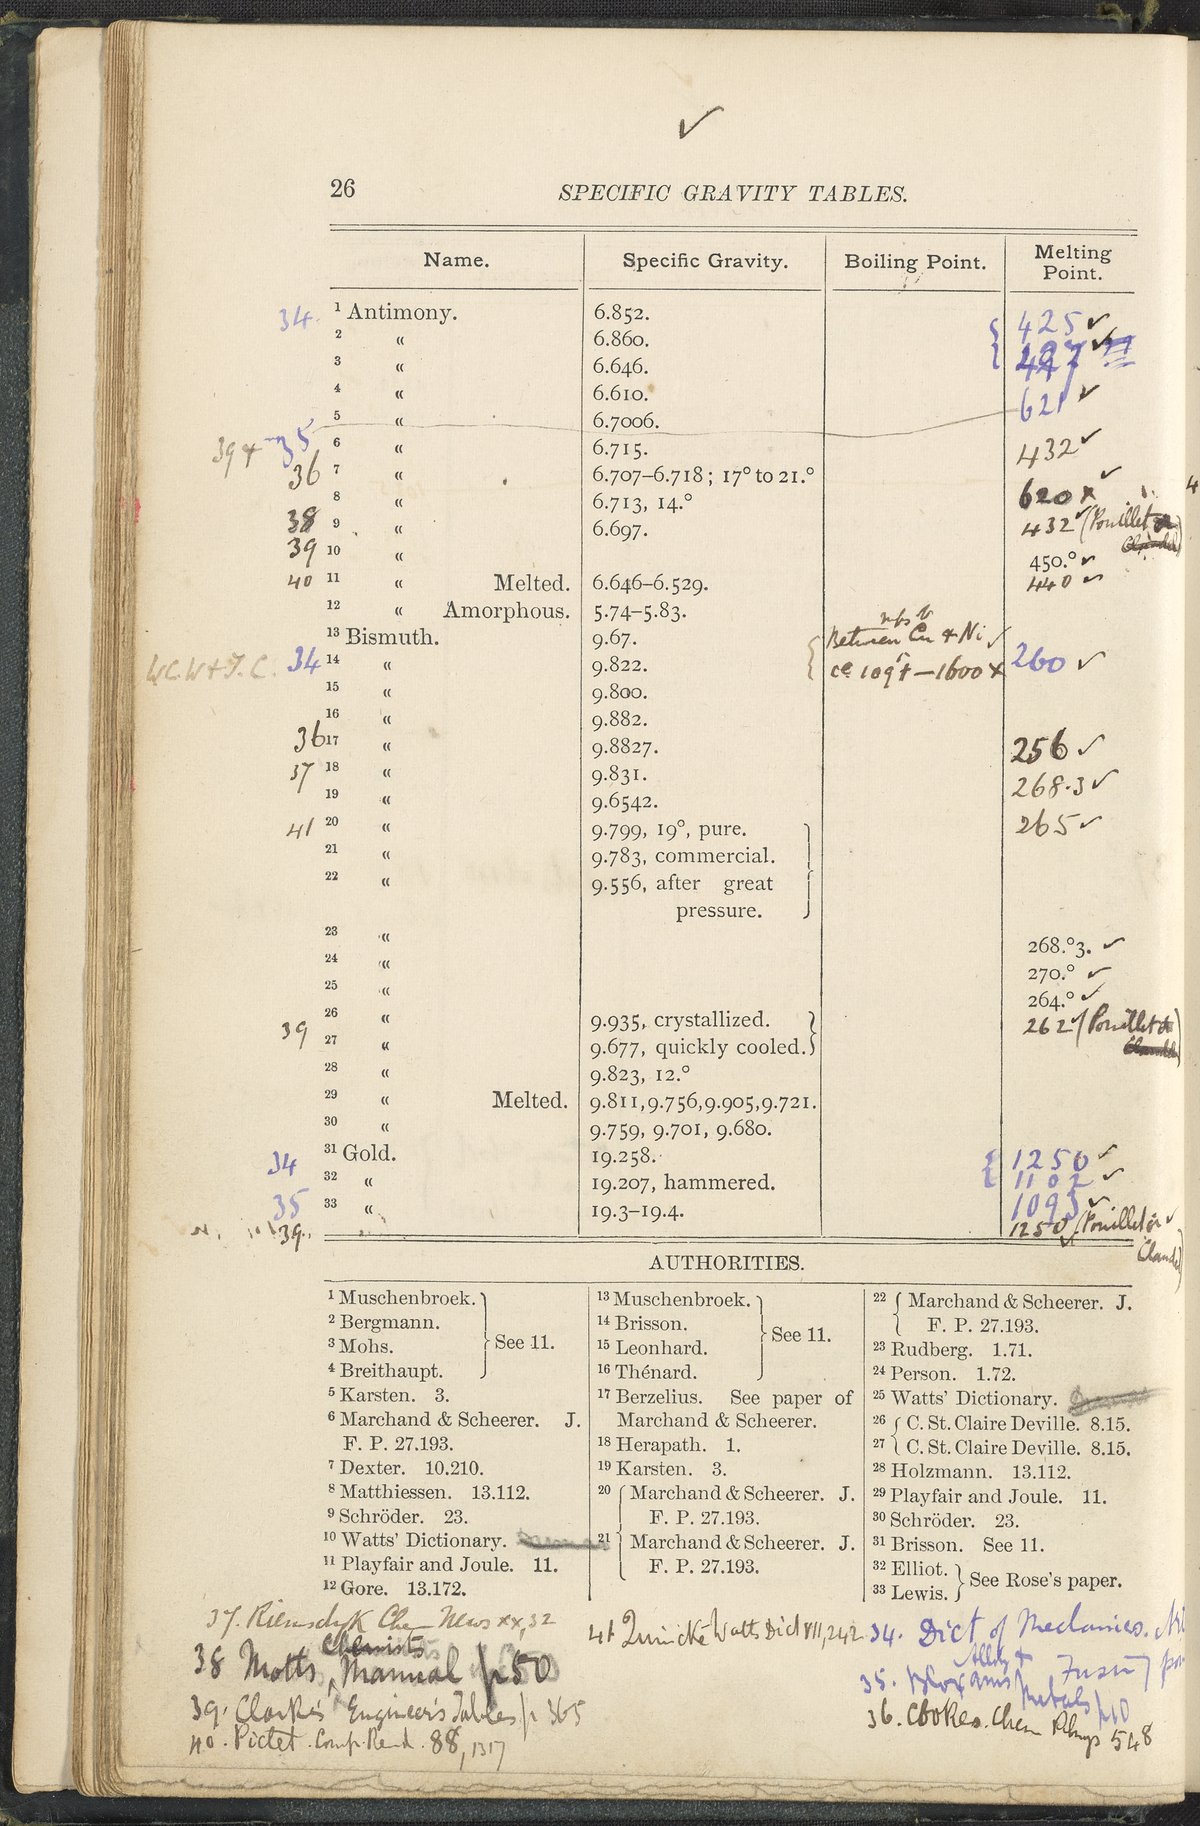 ✓
26 SPECIFIC GRAVITY TABLES.
Name. Specific Gravity. Boiling Point. Melting Point.
34. ¹ Antimony. 6.852. { 425 ✓
² “ 6.860.
³ “ 6.646.
⁴ “ 6.610. 621 ✓
⁵ “ 6.7006.
39 + 35 ⁶ “ 6.715. 432 ✓
36 ⁷ “ 6.707–6.718; 17° to 21.° 620 x ✓
⁸ “ 6.713, 14.°
38 ⁹ “ 6.697. 432 ✓ (Pouillet
39 ¹⁰ “ 450.° ✓
40 ¹¹ “ Melted. 6.646–6.529. 440 ✓
¹² “ Amorphous. 5.74–5.83.
¹³ Bismuth. 9.67. Between Cu + Ni ✓
W.C.W + J.C. 34 ¹⁴ “ 9.822. — 1600 x 260 ✓
¹⁵ “ 9.800.
¹⁶ “ 9.882.
36 ¹⁷ “ 9.8827. 256 ✓
37 ¹⁸ “ 9.831. 268.3 ✓
¹⁹ “ 9.6542.
41 ²⁰ “ 9.799, 19°, pure. 265 ✓
²¹ “ 9.783, commercial.
²² “ 9.556, after great
pressure.
²³ “ 268.°3. ✓
²⁴ “ 270.° ✓
²⁵ “ 264.° ✓
²⁶ “ 9.935, crystallized. 262 ✓ (Pouillet
39 ²⁷ “ 9.677, quickly cooled.
²⁸ “ 9.823, 12.°
²⁹ “ Melted. 9.811, 9.756, 9.905, 9.721.
³⁰ “ 9.759, 9.701, 9.680.
34 ³¹ Gold. 19.258. { 1250 ✓
³² “ 19.207, hammered. 1102 ✓
35 ³³ “ 19.3–19.4. 1093 ✓
39. 1250 ✓ (Pouillet
AUTHORITIES.
¹ Muschenbroek.
² Bergmann.
³ Mohs.
⁴ Breithaupt.
See 11.
⁵ Karsten. 3.
⁶ Marchand & Scheerer. J.
F. P. 27.193.
⁷ Dexter. 10.210.
⁸ Matthiessen. 13.112.
⁹ Schröder. 23.
¹⁰ Watts’ Dictionary.
¹¹ Playfair and Joule. 11.
¹² Gore. 13.172.
¹³ Muschenbroek.
¹⁴ Brisson.
¹⁵ Leonhard.
¹⁶ Thénard.
See 11.
¹⁷ Berzelius. See paper of
Marchand & Scheerer.
¹⁸ Herapath. 1.
¹⁹ Karsten. 3.
²⁰ { Marchand & Scheerer. J.
F. P. 27.193.
²¹ { Marchand & Scheerer. J.
F. P. 27.193.
²² { Marchand & Scheerer. J.
F. P. 27.193.
²³ Rudberg. 1.71.
²⁴ Person. 1.72.
²⁵ Watts’ Dictionary.
²⁶ { C. St. Claire Deville. 8.15.
²⁷ { C. St. Claire Deville. 8.15.
²⁸ Holzmann. 13.112.
²⁹ Playfair and Joule. 11.
³⁰ Schröder. 23.
³¹ Brisson. See 11.
³² Elliot.
³³ Lewis.
See Rose’s paper.
37. Riemsdyk Chem News xx, 32
Chemists
38 Motts Manual p 50
39. Clarke's Engineer's Tables p 365
40. Pictet. Comp. Rend. 88, 1317
41 Quincke Watts Dict VIII, 242
34. Dict of Mechanics.
35. Bloxams Metals p 10
36. Cooke's Chem Philosop 548